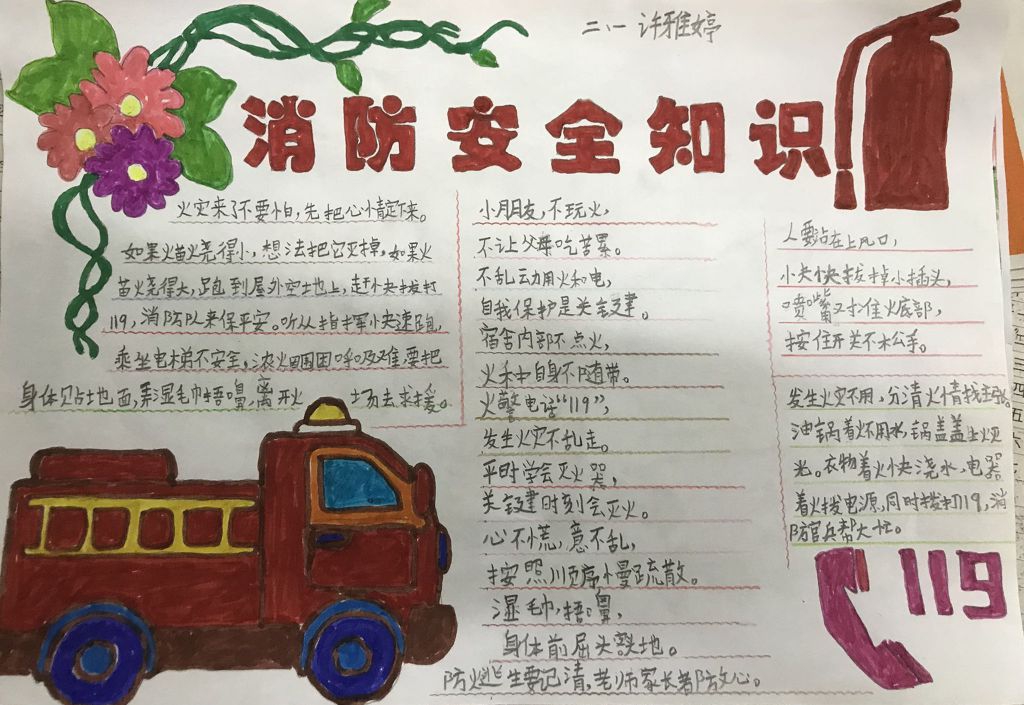 二、一 许雅婷
消防安全知识
火灾来了不要怕,先把心情定下来。
如果火苗火烧得小,想法把它灭掉,如果火
苗火烧得大,跑到屋外空地上,赶快来拨打
119,消防队来保平安。听从指挥快速跑,
乘坐电梯不安全,浓火围困呼吸难要把
身体贴地面,弄湿毛巾捂鼻,离开火 场去求援。
小朋友,不玩火,
不让父母吃苦累。
不乱动用火和电,
自我保护是关键。
宿舍内部不点火,
火种自身不随带。
火警电话“119”,
发生火灾不乱走。
平时学会灭火器,
关键时刻会灭火。
心不慌,意不乱,
按照顺序慢疏散。
湿毛巾,捂鼻,
身体前屈头靠地。
防火逃生要记清,老师家长都放心。
人要站在上风口,
小夬快拔掉小插头,
喷嘴对准火底部,
按住开关不松手。
发生火灾不用,分清火情找主张。
油锅着火不用水,锅盖盖上火灭
光。衣物着火快浇水,电器
着火拨电源,同时拨打119,消
防官兵帮大忙。
119